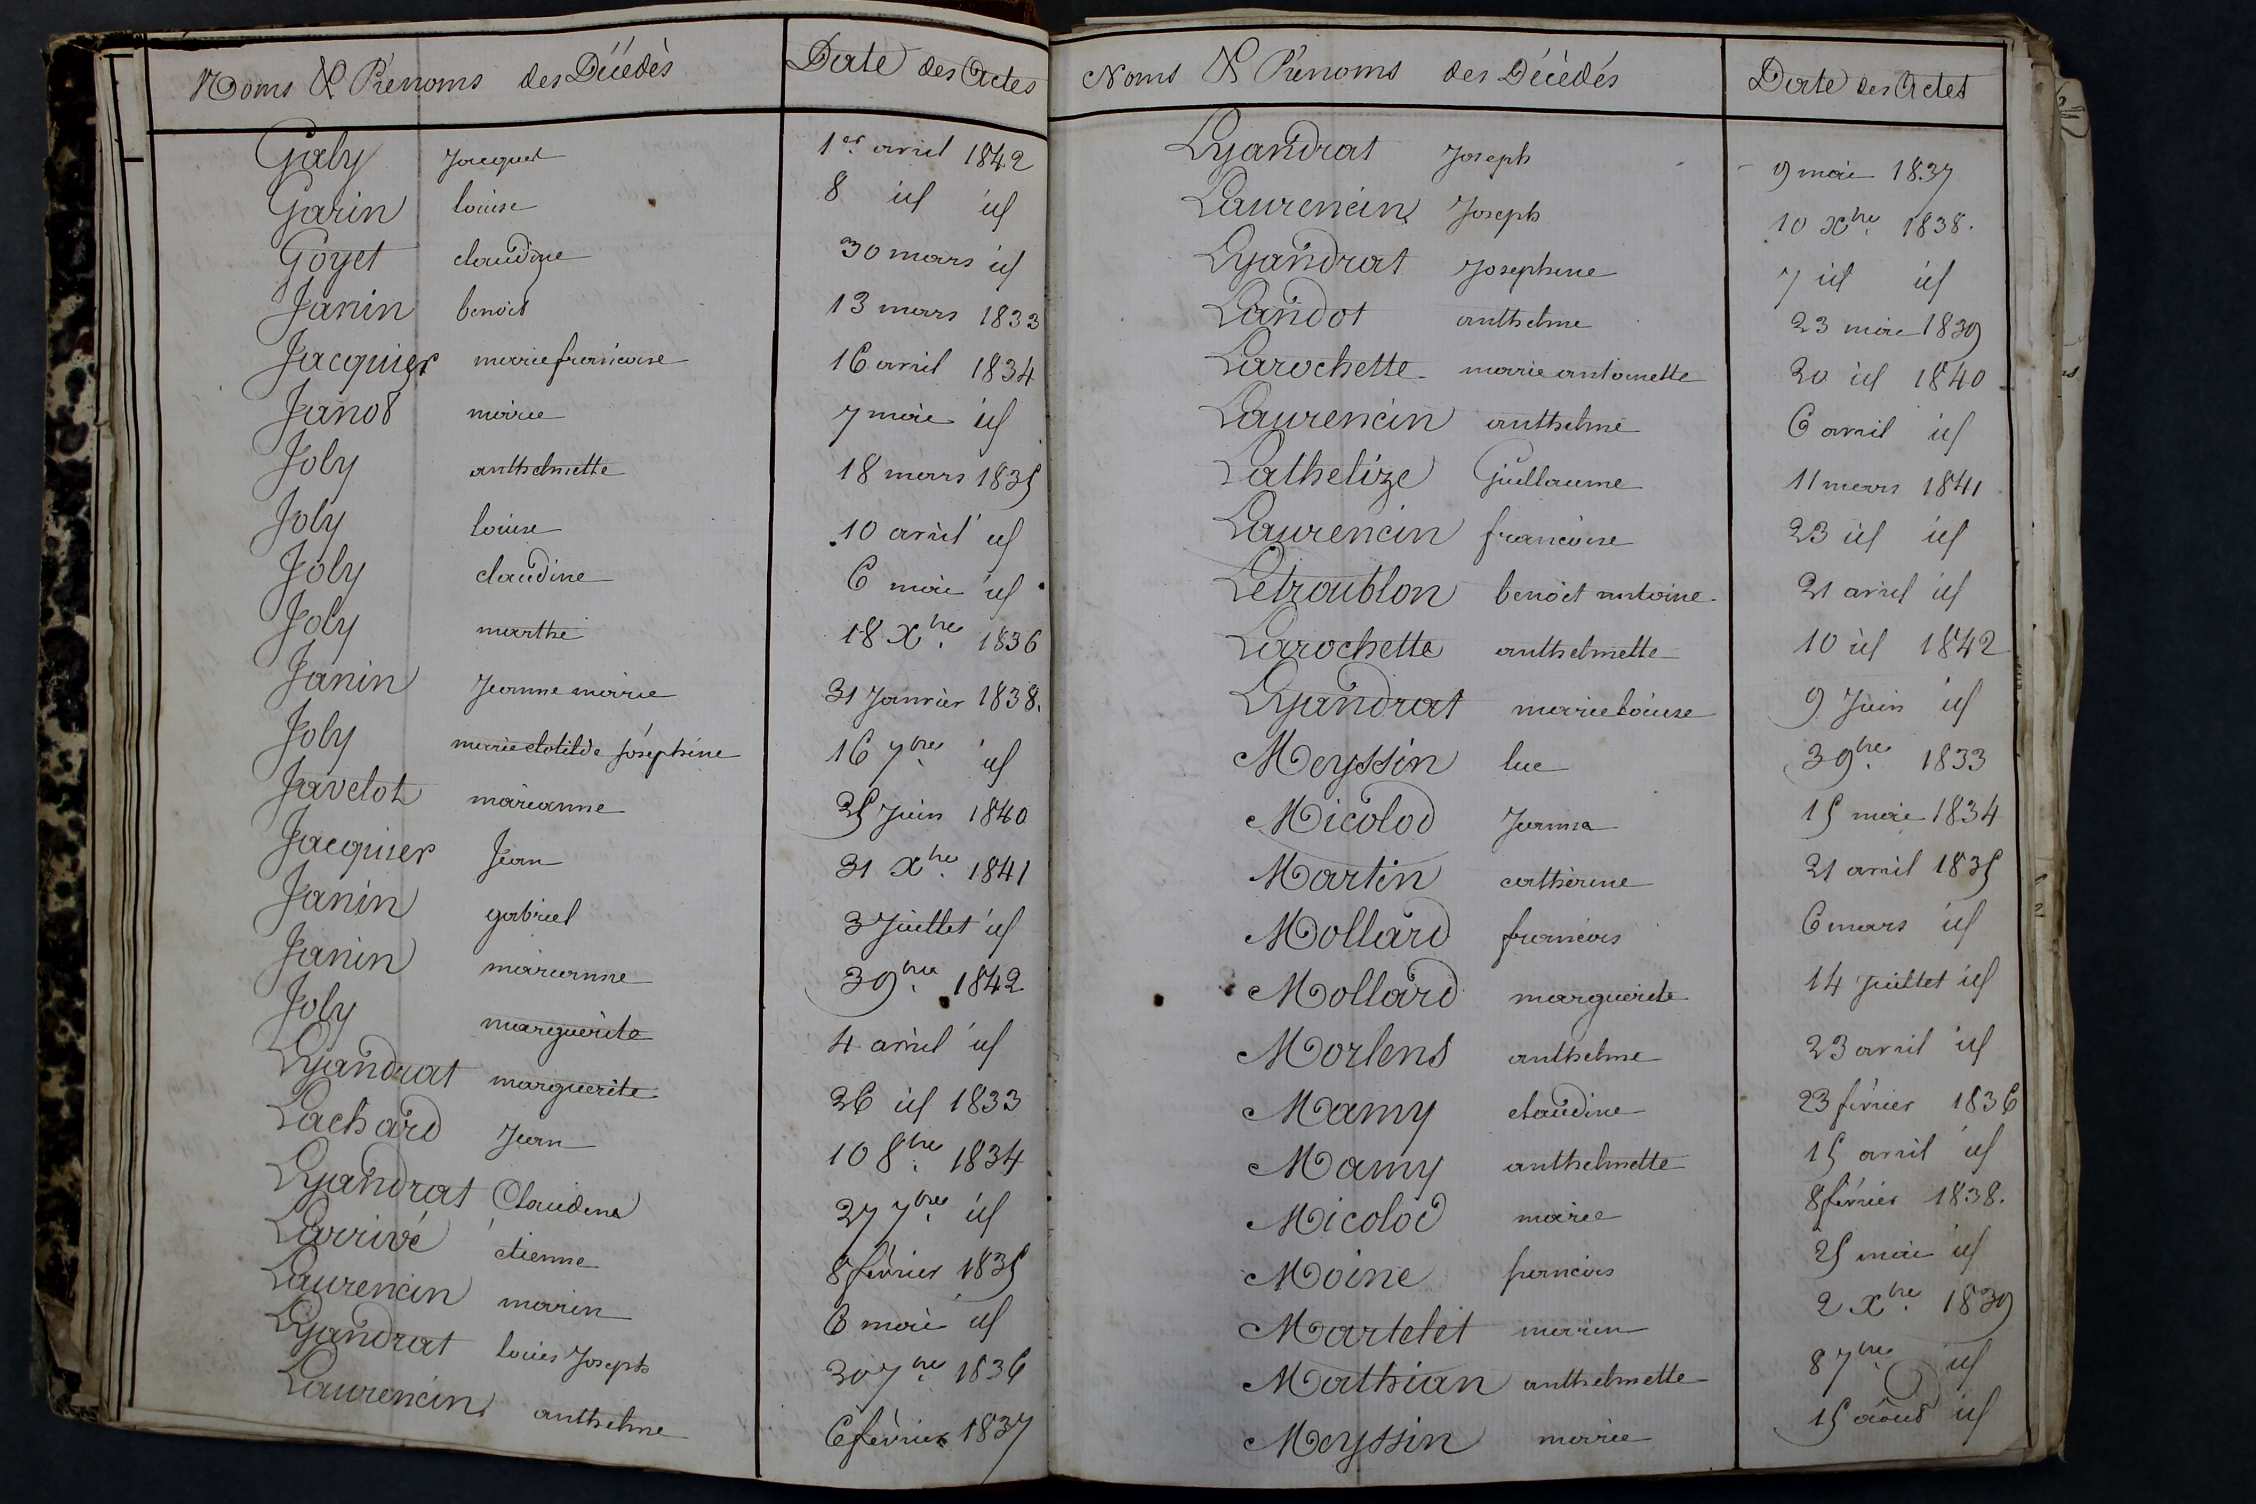 Noms & Prenoms des Décédès Date des Actes
Galy Jacques 1er avril 1842
Garin louise 8 id id
Goyet claudine 30 mars id
Janin benoit 13 mars 1833
Jacquier marie francoise 16 avril 1834
Janot marie 7 mai id
Joly anthelmette 18 mars 1835
Joly louise 10 avril id
Joly claudine 6 mai id
Joly marthe 18 Xbre 1836
Janin Jeanne marie 31 Janvier 1838.
Joly marie clotilde Joséphine 16 7bre id
Javelot marianne 25 Juin 1840
Jacquier Jean 31 Xbre 1841
Janin gabriel 3 Juillet id
Janin marianne 3 9bre 1842
Joly marguerite 4 avril id
Lyandrat marguerite 26 id 1833
Lachard Jean 10 8bre 1834
Lyandrat Claudine 27 7bre id
Larrivé étienne 8 février 1835
Laurencin marin 6 mai id
Lyandrat louis Joseph 30 7bre 1836
Laurencin anthelme 6 février 1837
Noms & Prénoms des Décèdés Date des Actes
Lyandrat Joseph 9 mai 1837
Laurencin Joseph 10 Xbre 1838.
Lyandrat Josephine 7 id id
Landot anthelme 23 mai 1839
Larochette marie antoinette 20 id 1840
Laurencin anthelme 6 avril id
Lathelize Guillaume 11 mars 1841
Laurencin francoise 23 id id
Letroublon benoit antoine 21 avril id
Larochette anthelmette 10 id 1842
Lyandrat marie louise 9 Juin id
Meyssin luc 3 9bre 1833
Micolod Jeanne 15 mai 1834
Martin catherine 21 avril 1835
Mollard francois 6 mars id
Mollard marguerite 14 Juillet id
Morlens anthelme 23 avril id
Mamy claudine 23 février 1836
Mamy anthelmette 15 avril id
Micolod marie 8 février 1838.
Moine francois 25 mai id
Martelet marin 2 Xbre 1839
Mathian anthelmette 8 7bre id
Meyssin marie 15 aout id